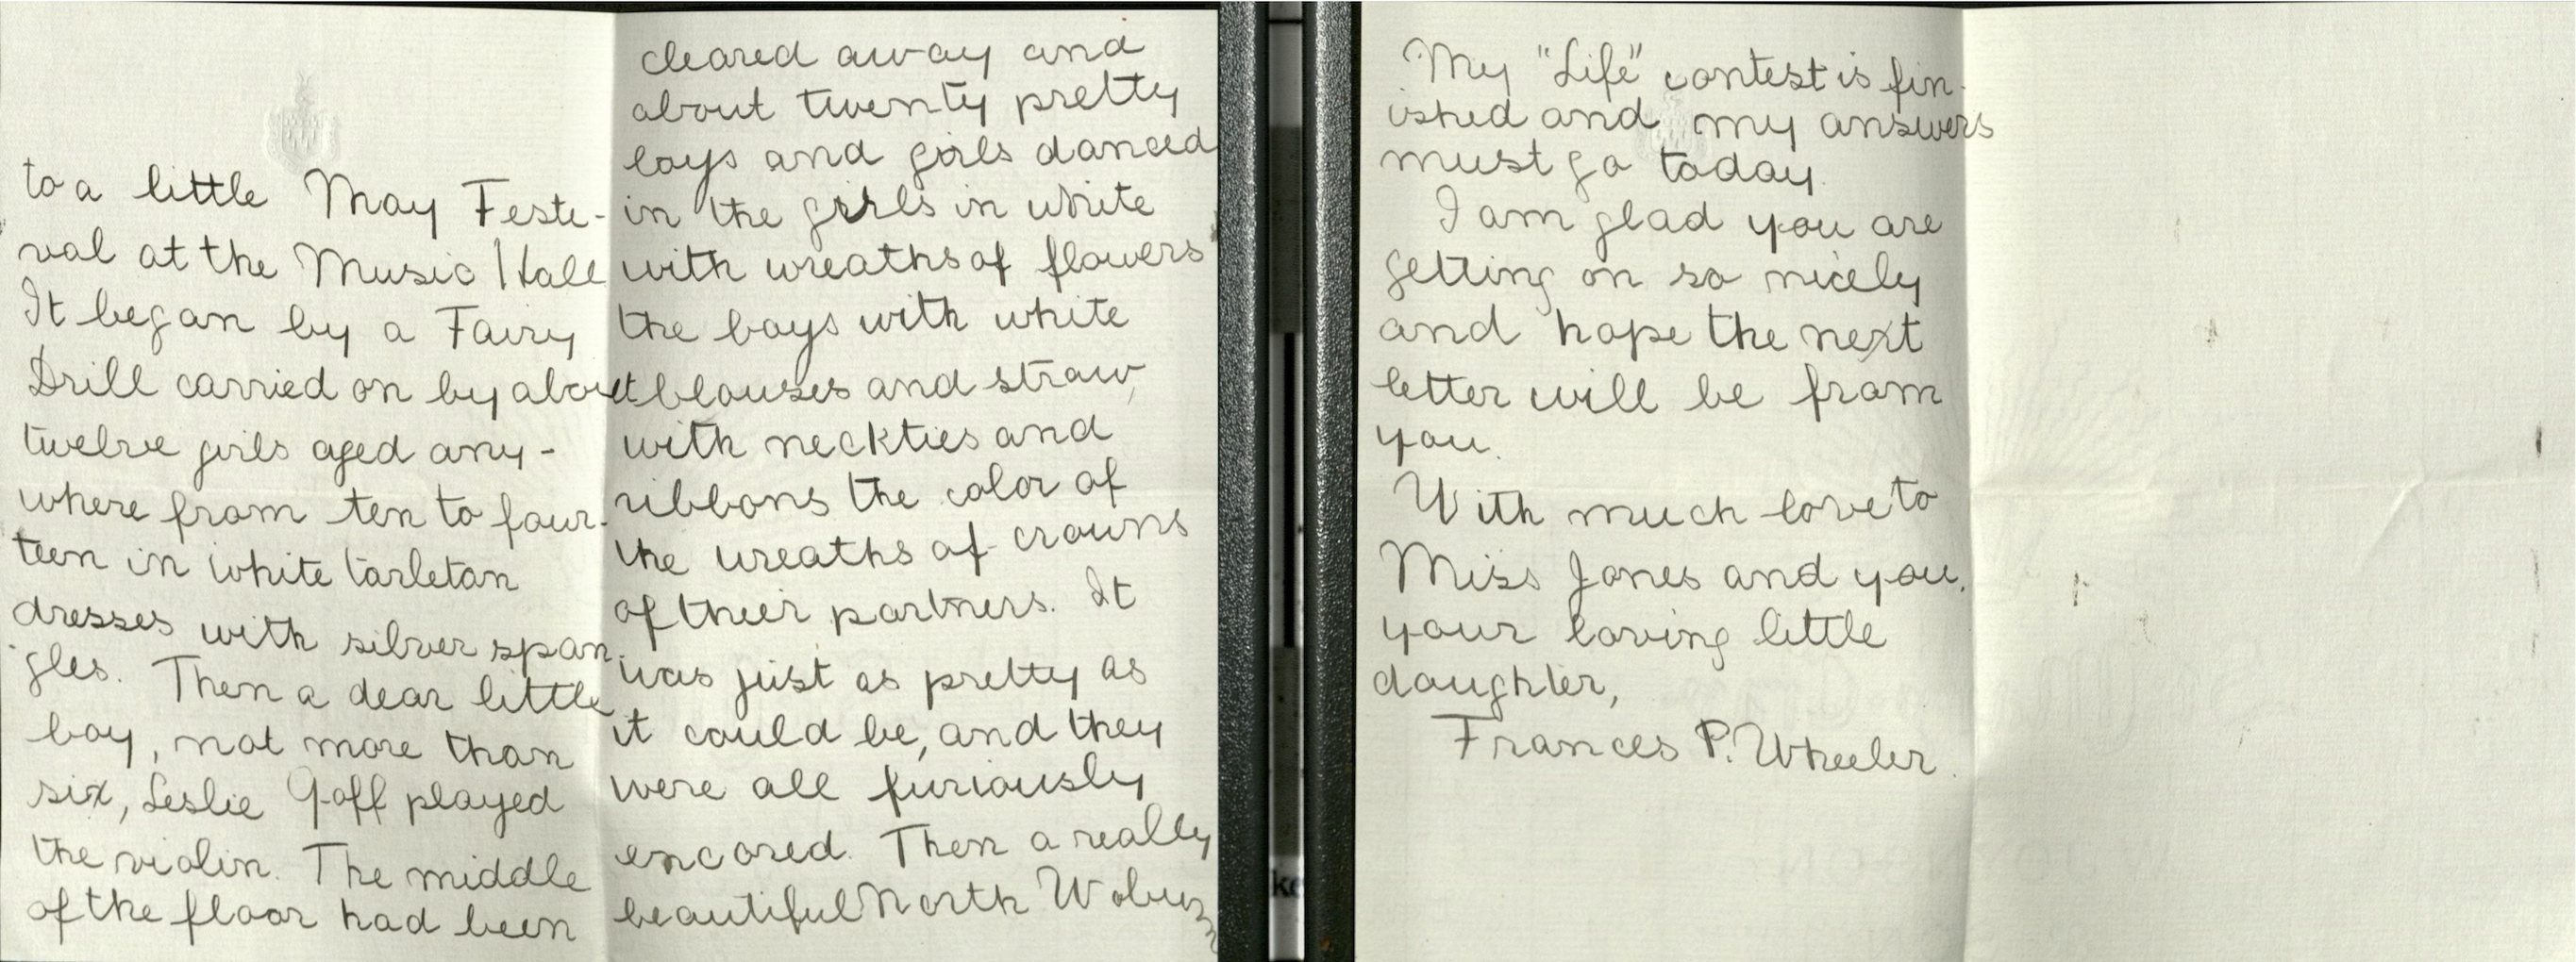 to a little May Feste-
val at the Music Hall
It began by a Fairy
Drill carried on by about
twelve girls aged any-
where from ten to four-
teen in white tarletan
dresses with silver span-
gles. Then a dear little
boy, not more than
six, Leslie Goff played
the violin. The middle
of the floor had been
cleared away and
about twenty pretty
boys and girls danced
in the girls in white
with wreaths of flowers
the boys with white
blouses and straw,
with neckties and
ribbons the color of
the wreaths of crowns
of their partners. It
was just as pretty as
it could be, and they
were all furiously
encored. Then a really
beautiful North Woburn
My "Life" contest is fin-
ished and my answers
must go today.
I am glad you are
getting on so nicely
and hope the next
letter will be from
you.
With much love to
Miss Jones and you,
your loving little
daughter,
Frances P. Wheeler.